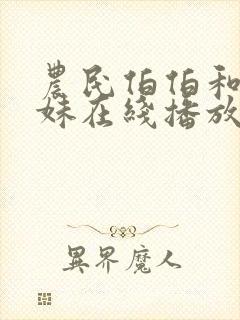 農民伯伯和
妹在綫播放
異界魔人